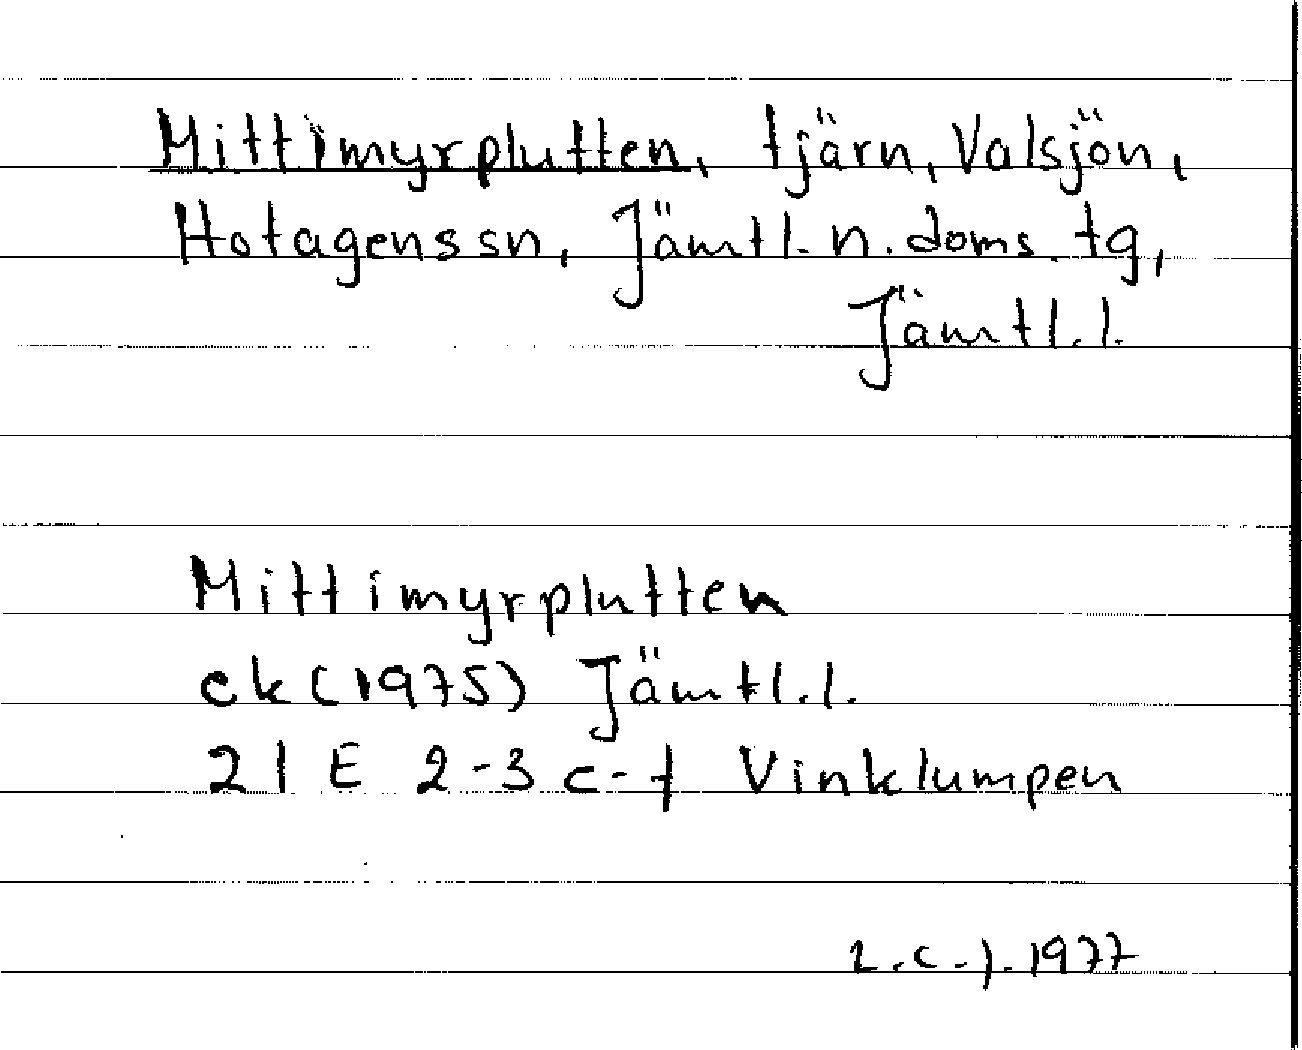 Mittimyrplutten, tjärn, Valsjön,
Hotagens sn, Jämtl. n. doms. tg,
Jämtl. l.
Mittimyrplutten
ek (1975) Jämtl. l.
21 E 2-3 c-f Vinklumpen
1977